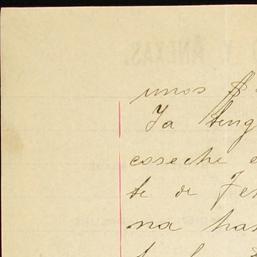 Y ANEXAS.
unos $
Ya teng
coseche e
te de Fe
na has